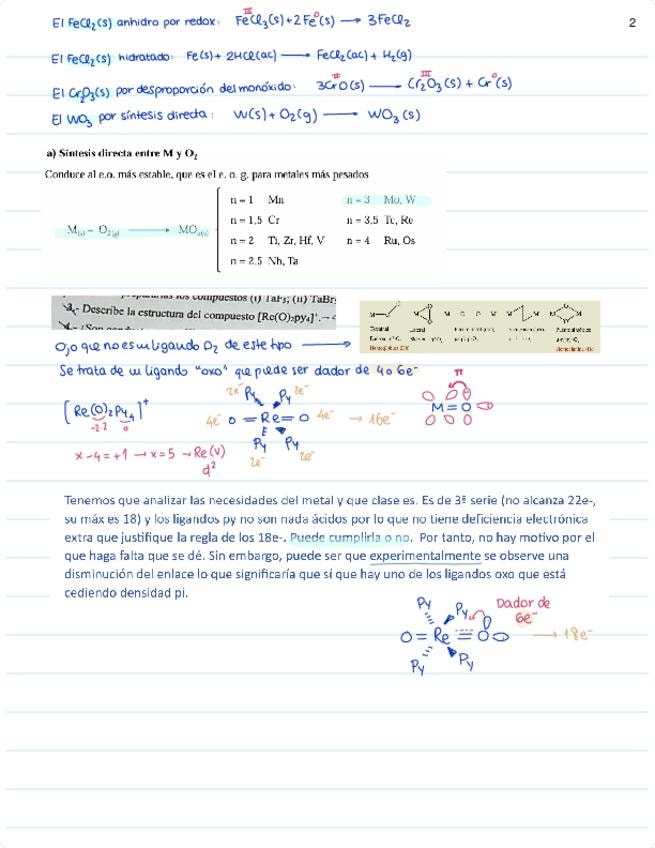 2
El FeCl₂(s) anhidro por redox: FeCl₃(s)+2Fe(s) → 3FeCl₂
III 0
El FeCl₂(s) hidratado: Fe(s)+ 2HCl(ac) → FeCl₂(ac) + H₂(g)
El Cr₂O₃(s) por desproporción del monóxido: 3CrO(s) → Cr₂O₃(s) + Cr(s)
II III 0
El WO₃ por síntesis directa: W(s)+O₂(g) → WO₃(s)
a) Síntesis directa entre M y O₂
Conduce al e.o. más estable, que es el e. o. g. para metales más pesados
n = 1 Mn n = 3 Mo, W
n = 1,5 Cr n = 3,5 Tc, Re
n = 2 Ti, Zr, Hf, V n = 4 Ru, Os
n = 2,5 Nb, Ta
los compuestos (i) TaF₅; (ii) TaBr
3.- Describe la estructura del compuesto [Re(O)₂py₄]⁺.
Ojo que no es un ligando O₂ de este tipo →
Se trata de un ligando "oxo" que puede ser dador de 4 o 6e⁻
[Re(O)₂Py₄]⁺
-2·2 0
x-4=+1 → x=5 → Re(V)
d²
2e⁻ Py Py 2e⁻
4e⁻ O=Re=O 4e⁻ → 16e⁻
Py Py
2e⁻ 2e⁻
π
M=O
Tenemos que analizar las necesidades del metal y que clase es. Es de 3ª serie (no alcanza 22e-,
su máx es 18) y los ligandos py no son nada ácidos por lo que no tiene deficiencia electrónica
extra que justifique la regla de los 18e-. Puede cumplirla o no. Por tanto, no hay motivo por el
que haga falta que se dé. Sin embargo, puede ser que experimentalmente se observe una
disminución del enlace lo que significaría que sí que hay uno de los ligandos oxo que está
cediendo densidad pi.
Py Py Dador de
6e⁻
O=Re≡O → 18e⁻
Py Py